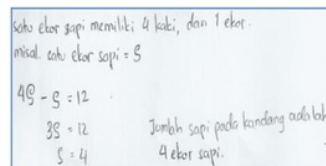 satu ekor sapi memiliki 4 kaki, dan 1 ekor.
misal. satu ekor sapi = S
4S - S = 12
3S = 12
S = 4
Jumlah sapi pada kandang adalah
4 ekor sapi.